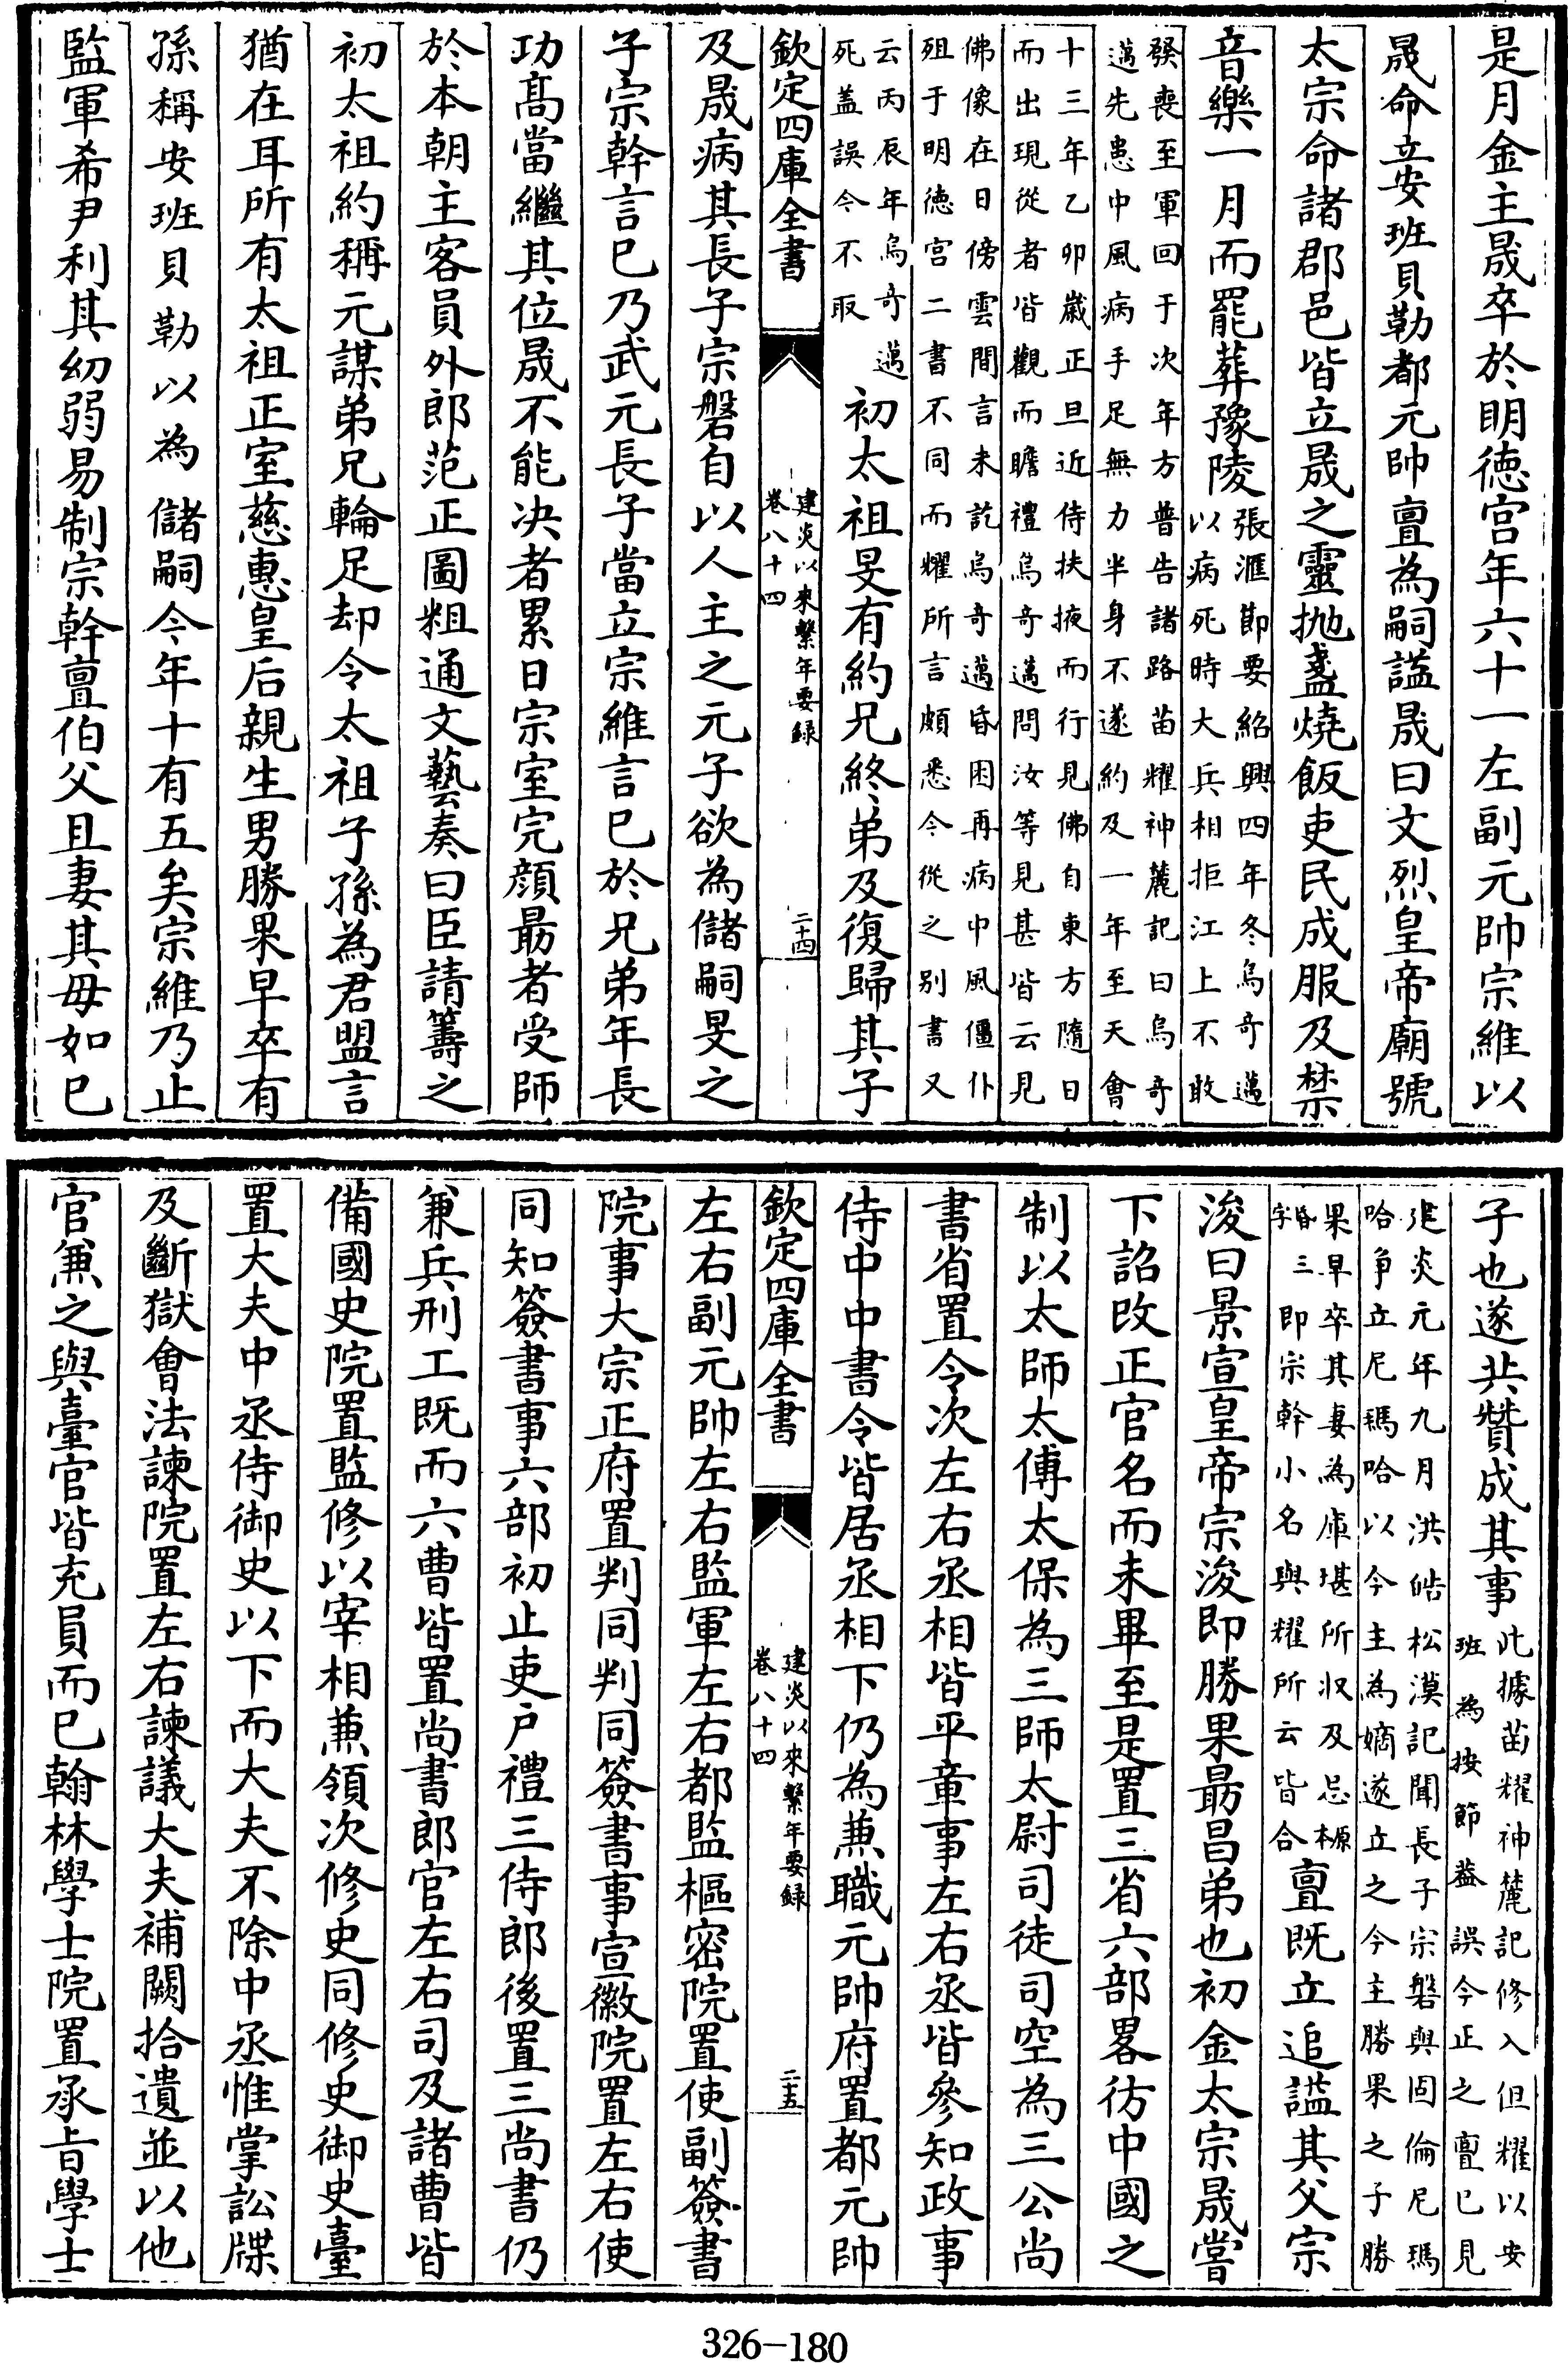 是月金主晟卒於明徳宫年六十一左副元帥宗維以
晟命立安班貝勒都元帥亶為嗣諡晟曰文烈皇帝廟號
太宗命諸郡邑皆立晟之靈抛盞燒飯吏民成服及禁
音樂一月而罷葬豫陵張滙節要紹興四年冬烏奇邁
以病死時大兵相拒江上不敢
發喪至軍回于次年方普告諸路苗耀神麓記曰烏奇
邁先患中風病手足無力半身不遂約及一年至天會
十三年乙卯歲正旦近侍扶掖而行見佛自東方隨日
而出現從者皆觀而瞻禮烏奇邁問汝等見甚皆云見
佛像在日傍雲間言未訖烏奇邁昏困再病中風僵仆
殂于明徳宫二書不同而耀所言頗悉今從之别書又
云丙辰年烏奇邁
死葢誤今不取
初太祖旻有約兄終弟及復歸其子
欽定四庫全書
建炎以來繫年要録
卷八十四
二十四
及晟病其長子宗磐自以人主之元子欲為儲嗣旻之
子宗幹言已乃武元長子當立宗維言已於兄弟年長
功髙當繼其位晟不能决者累日宗室完顔最者受師
於本朝主客員外郎范正圖粗通文藝奏曰臣請籌之
初太祖約稱元謀弟兄輪足却令太祖子孫為君盟言
猶在耳所有太祖正室慈惠皇后親生男勝果早卒有
孫稱安班貝勒以為儲嗣今年十有五矣宗維乃止
監軍希尹利其幼弱易制宗幹亶伯父且妻其母如已
子也遂共贊成其事此據苗耀神麓記修入但耀以安
班為按節葢誤今正之亶已見
建炎元年九月洪皓松漠記聞長子宗磐與固倫尼瑪
哈争立尼瑪哈以今主為嫡遂立之今主勝果之子勝
果早卒其妻為庫堪所収及忌原本
字昏三即宗幹小名與耀所云皆合
亶既立追諡其父宗
浚曰景宣皇帝宗浚即勝果最昌弟也初金太宗晟嘗
下詔改正官名而未畢至是置三省六部畧彷中國之
制以太師太傅太保為三師太尉司徒司空為三公尚
書省置令次左右丞相皆平章事左右丞皆參知政事
侍中中書令皆居丞相下仍為兼職元帥府置都元帥
欽定四庫全書
建炎以來繫年要録
卷八十四
二十五
左右副元帥左右監軍左右都監樞密院置使副簽書
院事大宗正府置判同判同簽書事宣徽院置左右使
同知簽書事六部初止吏户禮三侍郎後置三尚書仍
兼兵刑工既而六曹皆置尚書郎官左右司及諸曹皆
備國史院置監修以宰相兼領次修史同修史御史臺
置大夫中丞侍御史以下而大夫不除中丞惟掌訟牒
及斷獄會法諫院置左右諫議大夫補闕拾遺並以他
官兼之與臺官皆充員而已翰林學士院置承旨學士
326-180